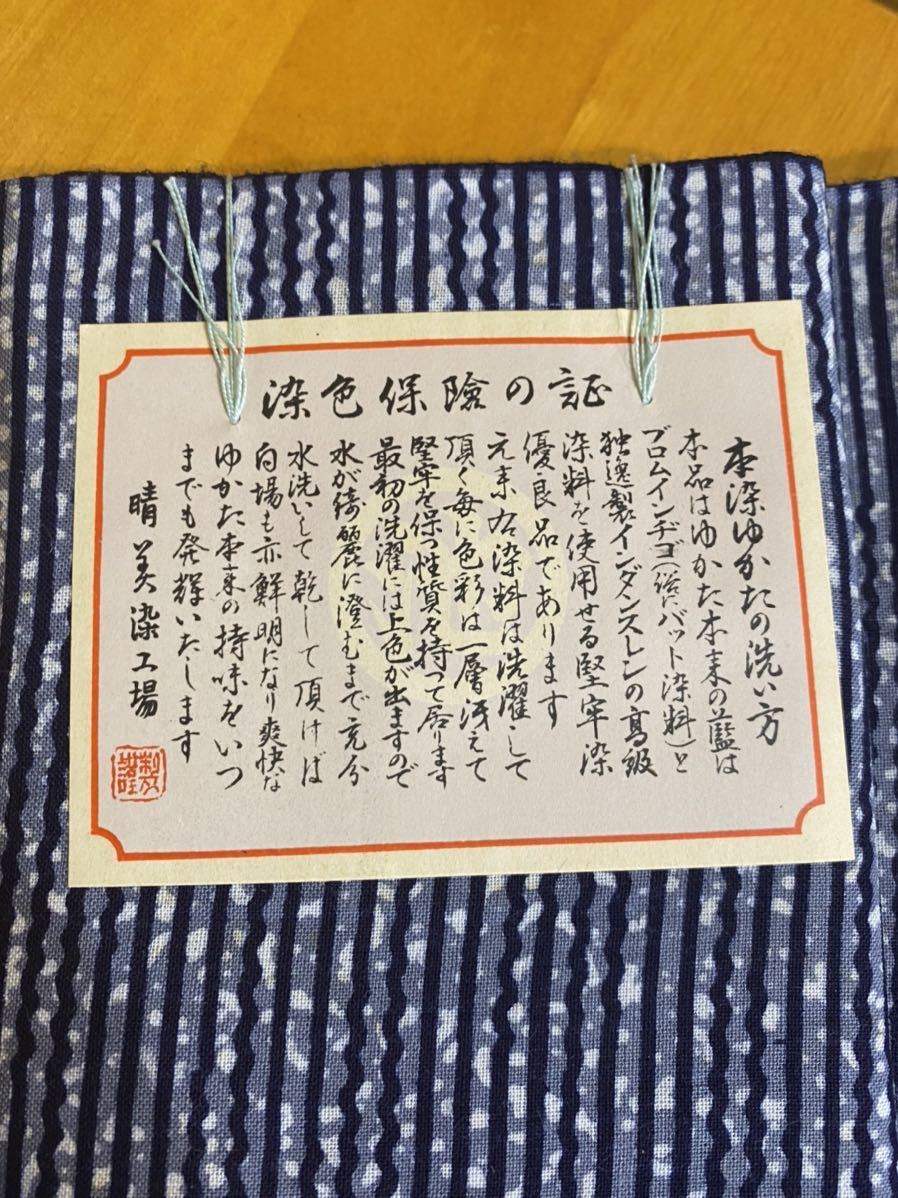 染色保險の証
本染ゆかたの洗い方
本品はゆかた本来の藍は
ブロムインヂゴ(俗にバット染料)と
独逸製インダンスレンの高級
染料を使用せる堅牢染
優良品であります
元来右染料は洗濯して
頂く毎に色彩は一層冴えて
堅牢を保つ性質を持って居ります
最初の洗濯には上色が出ますので
水が綺麗に澄むまで充分
水洗いして乾して頂けば
白場も亦鮮明になり爽快な
ゆかた本来の持味をいつ
までも発輝いたします
晴美染工場